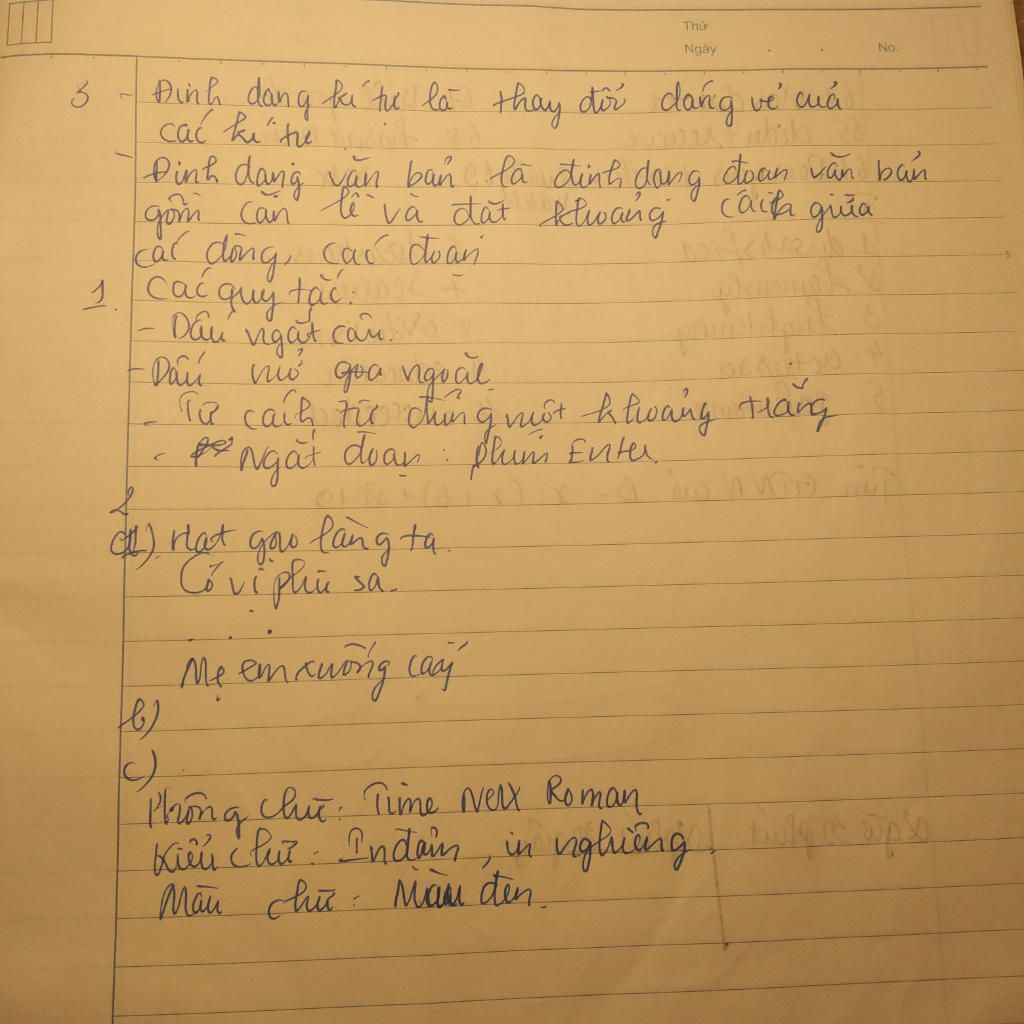 Thứ
Ngày . . No.
3 - Định dạng kí tự là thay đổi dáng vẻ của
các kí tự
- Định dạng văn bản là định dạng đoạn văn bản
gồm căn lề và đặt khoảng cách giữa
các dòng, các đoạn
1. Các quy tắc:
- Dấu ngắt câu.
- Dấu mở qoa ngoặc
- Từ cách từ đúng một khoảng trắng
- Ngắt đoạn : phím Enter.
2
a) Hạt gạo làng ta.
Có vị phù sa.
. . .
Mẹ em xuống cấy
b)
c)
Phông chữ: Time New Roman
Kiểu chữ: In đậm, in nghiêng.
Màu chữ: Màu đen.